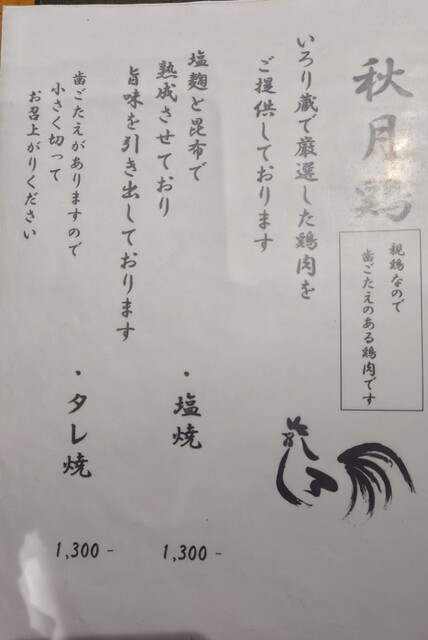 秋月鶏
親鶏なので
歯ごたえのある鶏肉です
いろり蔵で厳選した鶏肉を
ご提供しております
塩麹と昆布で
熟成させており
旨味を引き出しております
歯ごたえがありますので
小さく切って
お召上がりください
・塩焼
1,300-
・タレ焼
1,300-